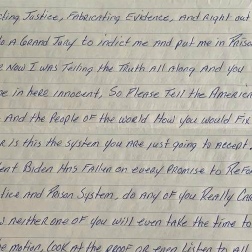 cting Justice, Fabricating Evidence, And Right out
to A Grand Jury to indict me and put me in Prison
e Now I was Telling the Truth All Along And you
ge in here innocent, So Please Tell the America
And the People of the world How you would Fix
r is this the system you are just going to accept.
ent Biden Has Fallen on every Promise to Refor
tice and Prison System, do Any of you Really Care
s neither one of you will even take the time to
he motion, Look at the proof or even Listen to all